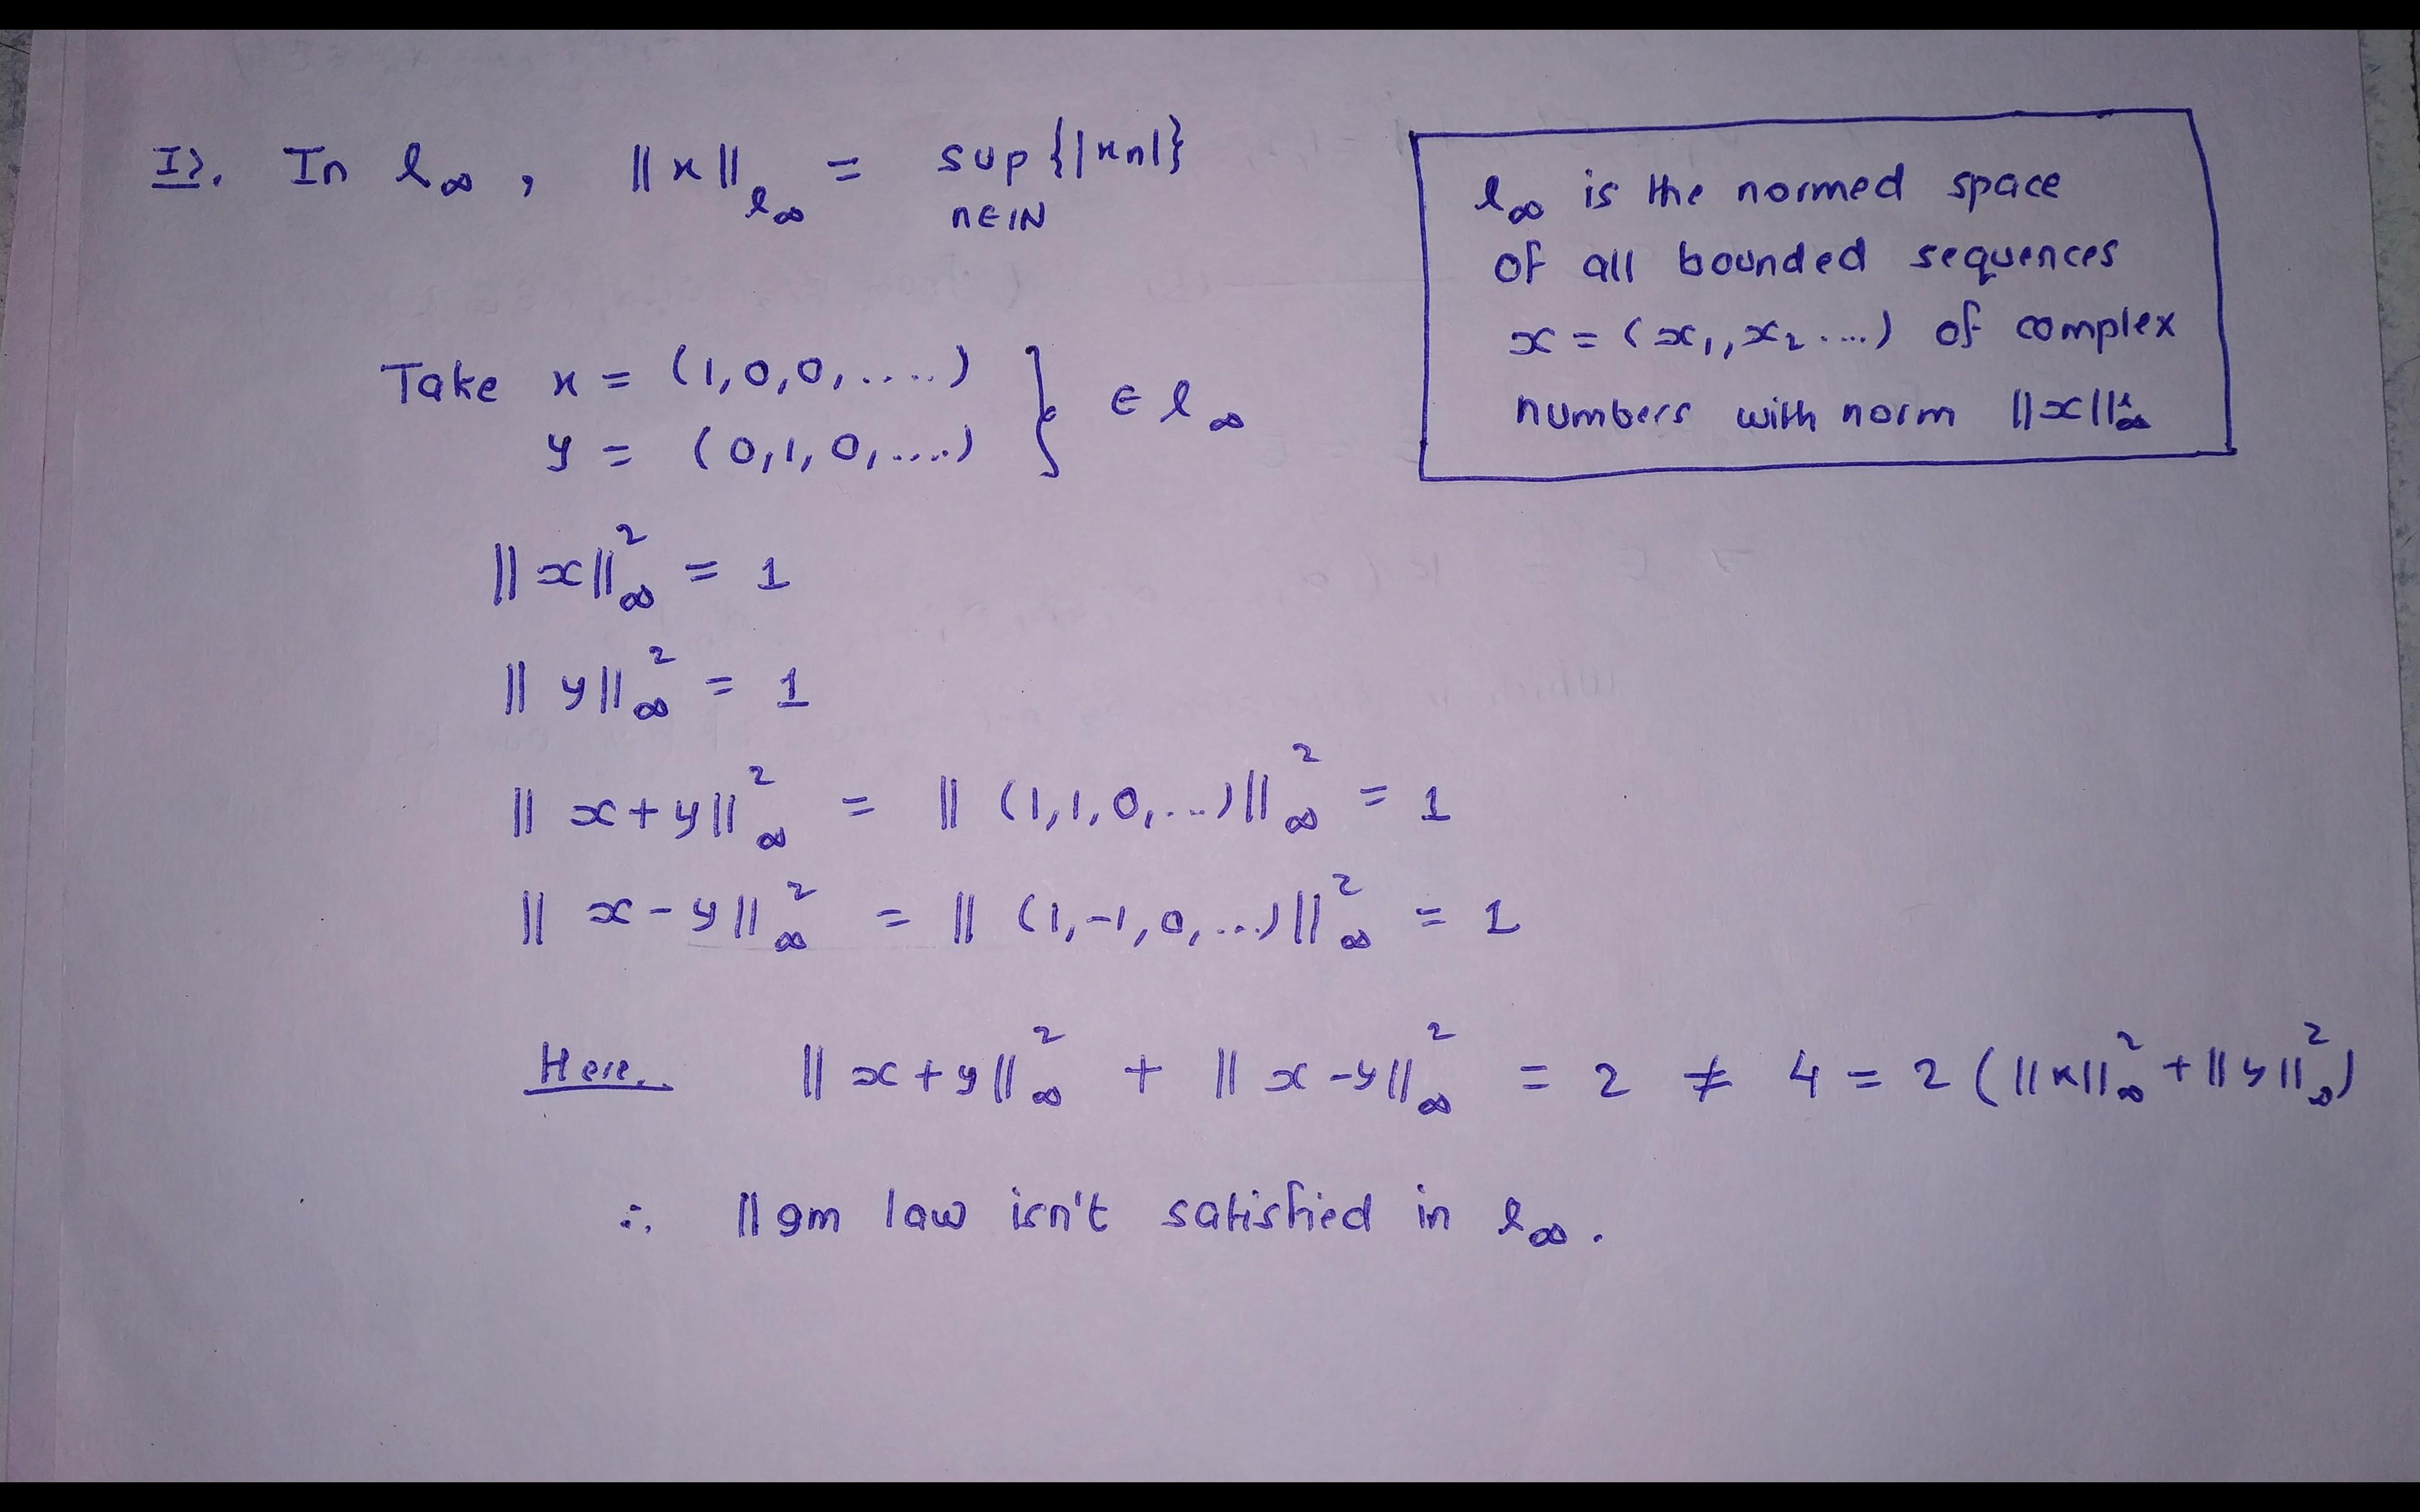 I). In l∞ , ||x||l∞ = sup {|xn|}
n∈IN
l∞ is the normed space
of all bounded sequences
x = (x₁, x₂ ....) of complex
numbers with norm ||x||∞
Take x = (1,0,0,.....)
y = (0,1,0,.....) } ∈ l∞
||x||²∞ = 1
||y||²∞ = 1
||x+y||²∞ = ||(1,1,0,...)||²∞ = 1
||x-y||²∞ = ||(1,-1,0,...)||²∞ = 1
Here. ||x+y||²∞ + ||x-y||²∞ = 2 ≠ 4 = 2(||x||²∞ + ||y||²∞)
∴ ||gm law isn't satisfied in l∞.